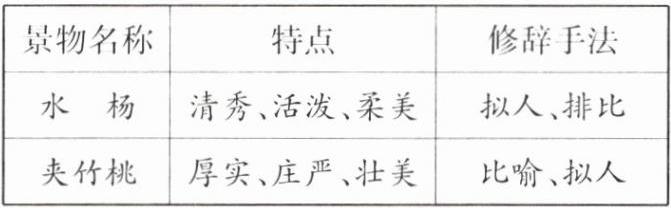 景物名称 特点 修辞手法
水 杨 清秀、活泼、柔美 拟人、排比
夹竹桃 厚实、庄严、壮美 比喻、拟人